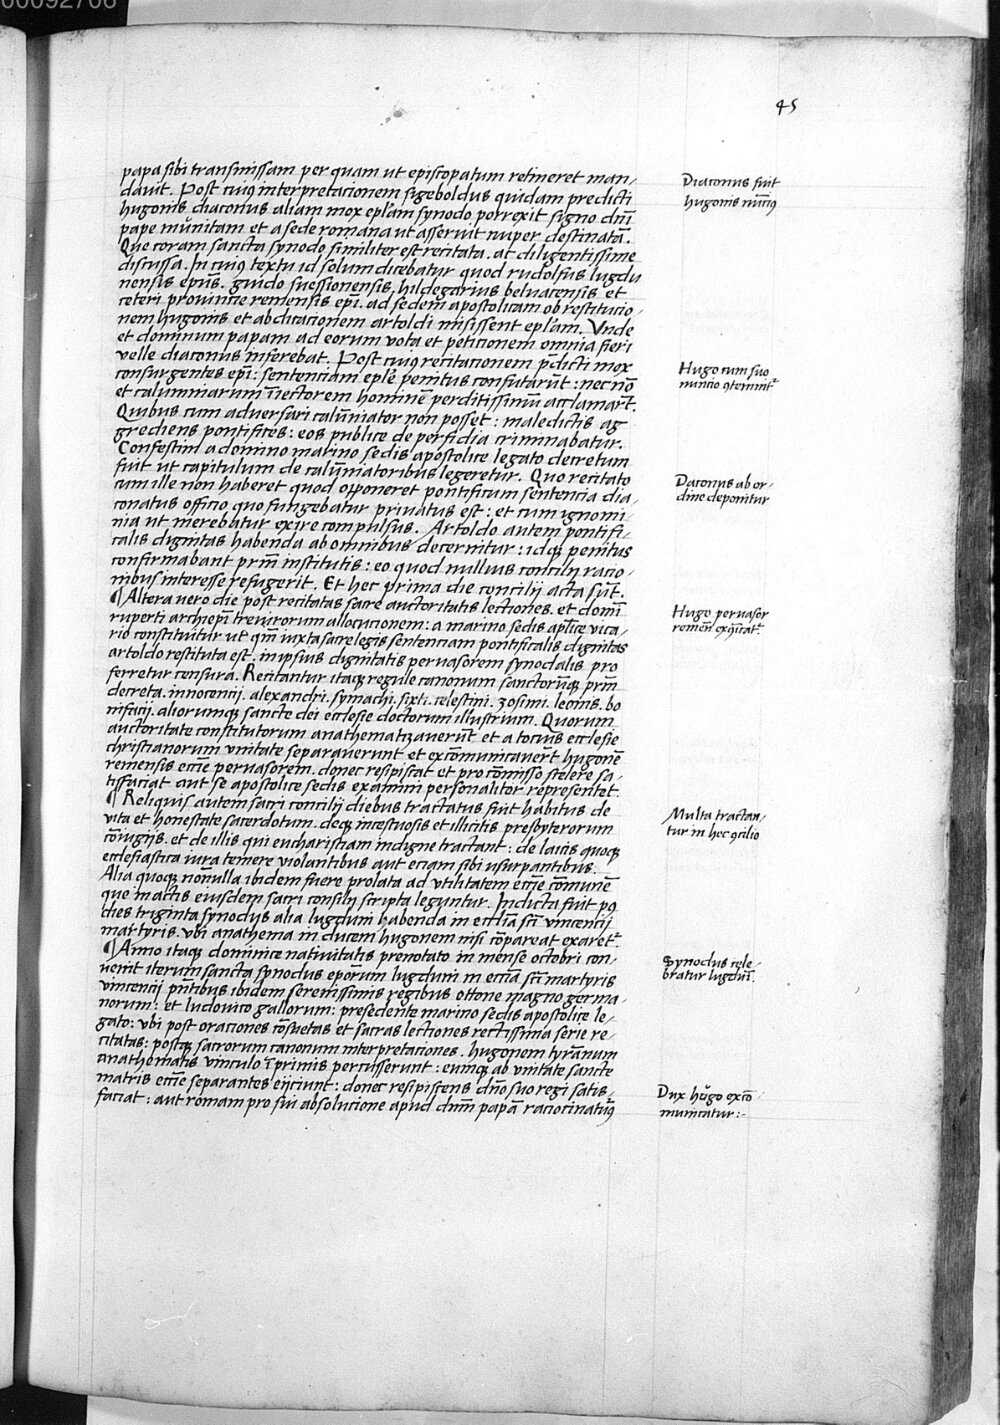 00092706
45
papa sibi transmissam per quam ut episcopatum retineret man-
davit. Post cuiꝰ interpretacionem sigeboldus quidam predicti
hugonis diaconus aliam mox ep̄lam synodo porrexit signo dn̄i
pape munitam et a sede romana ut asseruit nuper destinatā.
Que coram sancta synodo similiter est recitata. ac diligentissime
discussa. In cuiꝰ textu id solum dicebatur quod rudolfus lugdu
nensis ep̄us. guido suessionensis, hildegarius beluacensis et
ceteri prouincie remensis ep̄i. ad sedem apostolicam ob restitucio-
nem hugonis et abdicacionem artoldi misissent ep̄lam. Vnde
et dominum papam ad eorum vota et peticionem omnia fieri
velle diaconus inferebat. Post cuiꝰ recitacionem p̄dicti mox
consurgentes ep̄i: sentenciam ep̄le penitus confutarūt: nec nō
et calumniarum īiectorem hominem perditissimū acclamarūt.
Quibus cum adversari calūniator non posset: maledictis ag
grediens pontifices: eos publice de perfidia criminabatur.
Confestim a domino marino sedis apostolice legato decretum
fuit ut capitulum de calūniatoribus legeretur. Quo recitato
cum ille non haberet quod opponeret pontificum sentencia dia-
conatus officio quo fungebatur privatus est: et cum ignomi-
nia ut merebatur exire compulsus. Artoldo autem pontifi-
calis dignitas habenda ab omnibus decernitur: idqꝫ penitus
confirmabant prīm institutis: eo quod nullius concilij racio-
nibus interesse refugerit. Et hec prima die concilij acta sūt.
¶ Altera vero die post recitatas sacre auctoritatis lectiones. et domī
ruperti archiep̄i trevirorum allocucionem: a marino sedis ap̄lice vica-
rio constituitur ut qm̄ iuxta sacre legis sentenciam pontificalis dignitas
artoldo restituta est. in ipsius dignitatis pervasorem synodalis pro
ferretur censura. Recitantur itaqꝫ regule canonum sanctorūqꝫ prīm
decreta. innocencij. alexandri. symachi. sixti. celestini. zosimi. leonis. bo
nifacij. aliorumqꝫ sancte dei ecclesie doctorum illustrium. Quorum
auctoritate constitutorum anathematizaverūt et a tocius ecclesie
christianorum vnitate separaverunt et excōmunicaverūt hugonē
remensis ecc̄ie pervasorem. donec resipiscat et pro cōmisso scelere sa-
tisfaciat aut se apostolice sedis examini personaliter representet.
¶ Reliquis autem sacri concilij diebus tractatus fuit habitus de
vita et honestate sacerdotum. deqꝫ incestuosis et illicitis presbyterorum
cōiugijs. et de illis qui eucharistiam indigne tractant: de laicis quoqꝫ
ecclesiastica iura temere violantibus aut eciam sibi usurpantibus.
Alia quoqꝫ nōnulla ibidem fuere prolata ad vtilitatem ecc̄ie cōmunē
que in actis eiusdem sacri consilij scripta leguntur. Indicta fuit pꝰ
dies triginta synodus alia lugduni habenda in eccl̄ia sc̄i vincencij
martyris. vbi anathema in ducem hugonem nisi cōpareat exaretr̄.
¶ Anno itaqꝫ dominice nativitatis prenotato in mense octobri con-
venit iterum sancta synodus ep̄orum lugduni in ecc̄ia sc̄i martyris
vincencij pn̄tibus ibidem serenissimis regibus ottone magno germa-
norum: et ludovico gallorum: presedente marino sedis apostolice le-
gato: vbi post oraciones cōsuetas et sacras lectiones rectissima serie re-
citatas: postqꝫ sacrorum canonum interpretaciones. hugonem tyrānum
anathematis vinculo īprimis percusserunt: eumqꝫ ab vnitate sancte
matris ecc̄ie separantes eijciunt: donec resipiscens dn̄o suo regi satis-
faciat: aut romam pro sui absolucione apud dn̄m papā raciocinatuꝰ
Diaconus fuit
hugonis nūciꝰ
Hugo cum suo
nuncio ꝯtemnitr̄
Daconus ab or-
dine deponitur
Hugo pervasor
remen̄ exꝯīcatr̄.
Multa tractan-
tur in hoc ꝯcilio
Synodus cele-
bratur lugdūi.
Dux hugo excō
municatur:-